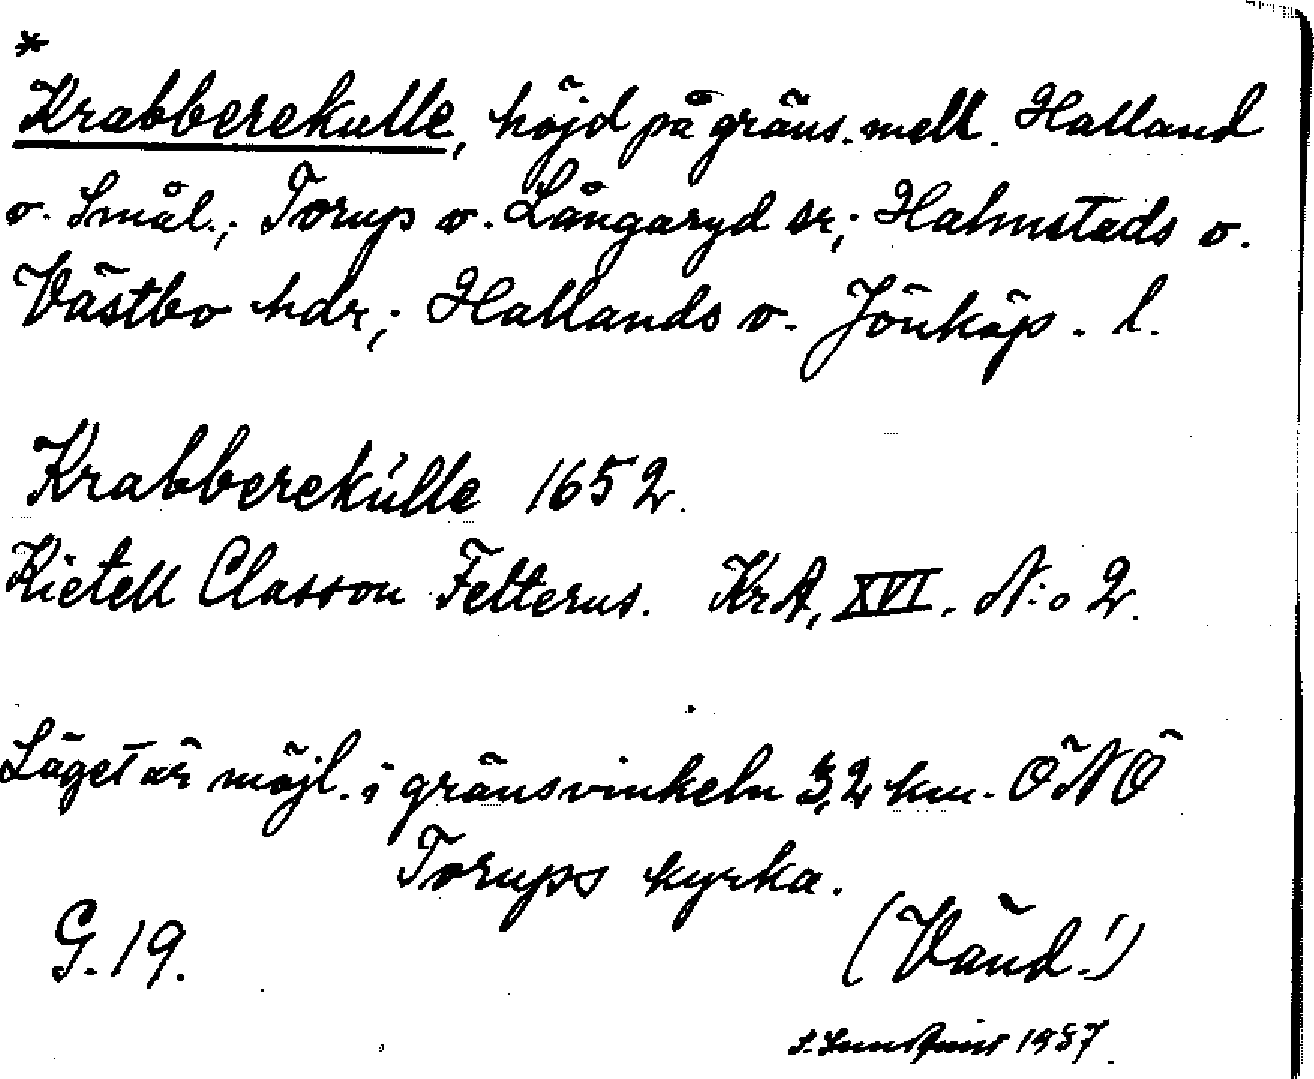 *
Krabberekulle, höjd på gräns. mell. Halland
o. Smål.; Torup o. Långaryd sr; Halmstads o.
Västbo hdr; Hallands o. Jönköp. l.
Krabberekúlle 1652.
Kietell Classon Felterus. KrA, XVI. N:o 2.
Läget är möjl. i gränsvinkeln 3,2 km. ÖNÖ
Torups kyrka.
G. 19.
(Vänd!)
1957